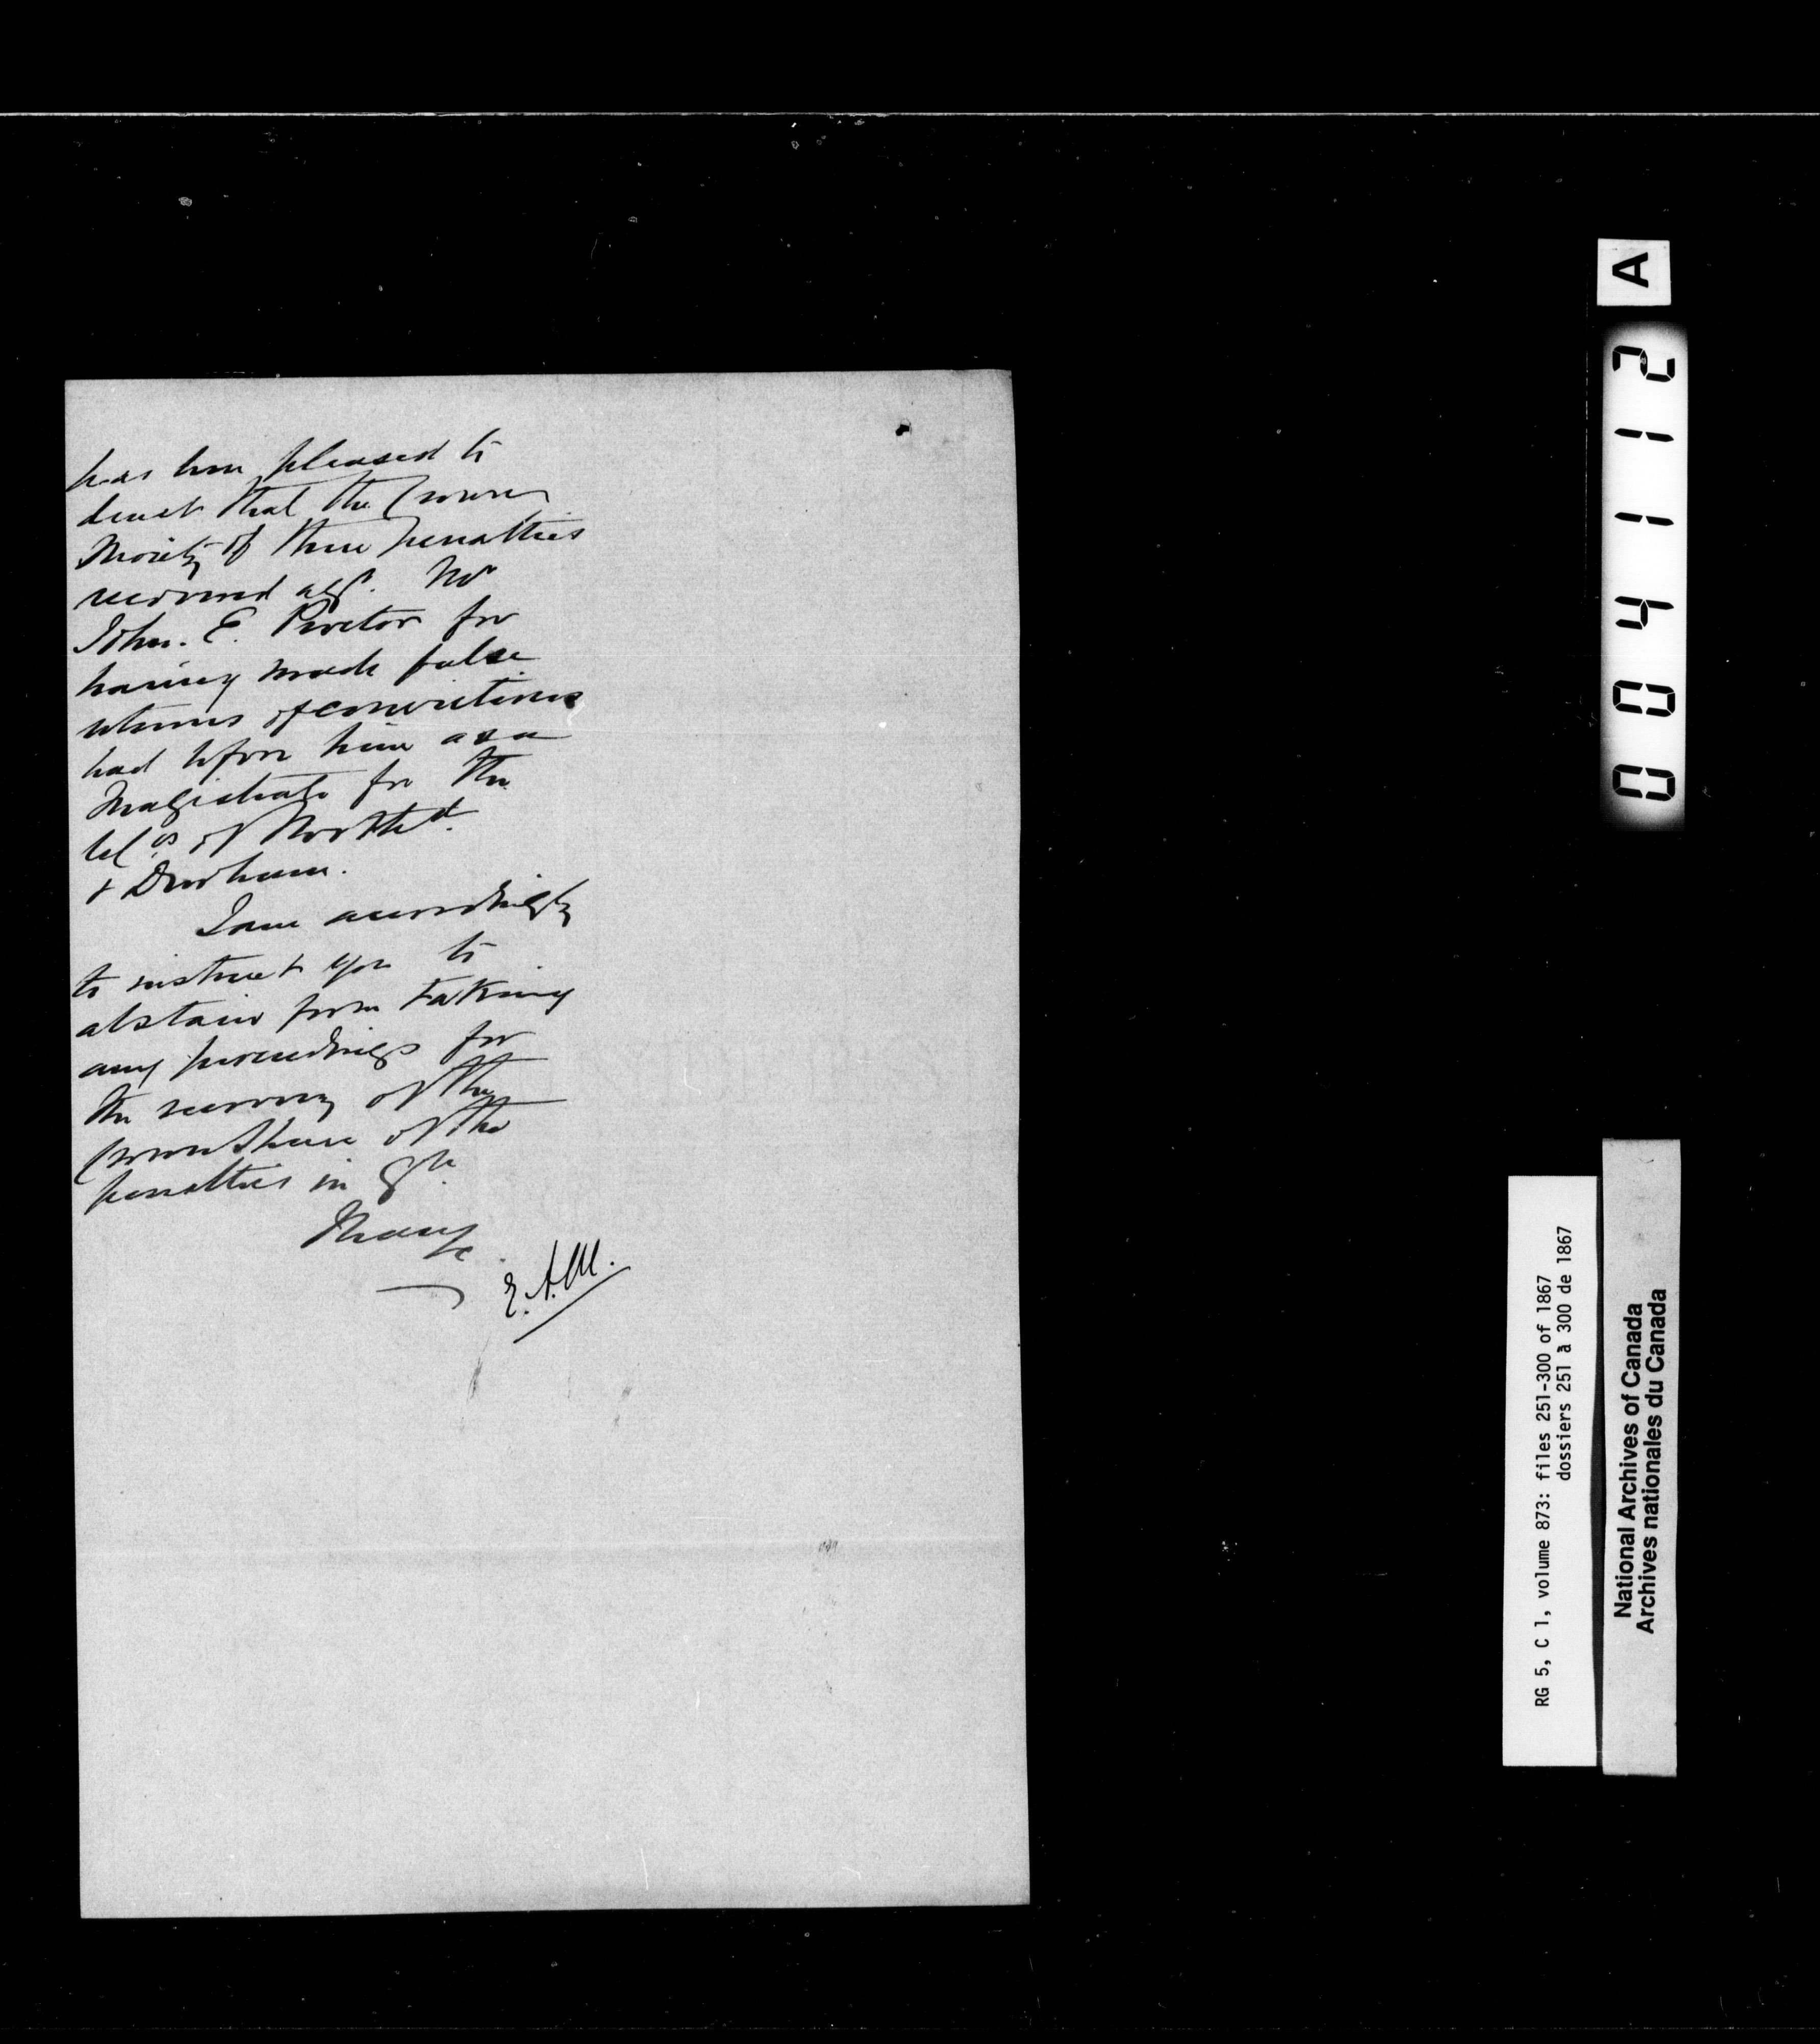 has been pleased to
direct that the Crown
Moiety of three penalties
recovered agst. Mr
John. E. Proctor for
having made false
returns of convictions
had before him as a
Magistrate for the
Cos of Northd.
& Durham.
I am accordingly
to instruct you to
abstain from taking
any proceedings for
the recovery of the
Crown share of the
penalties in qn.
I have &c
E.A.M.
A
004112
RG 5, C 1, volume 873: files 251-300 of 1867
dossiers 251 à 300 de 1867
National Archives of Canada
Archives nationales du Canada